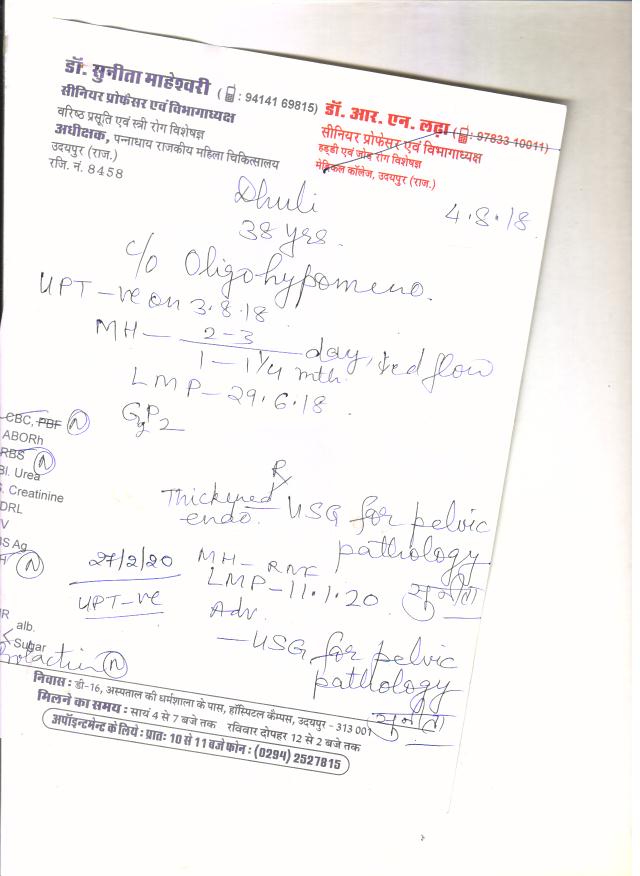 डॉ. सुनीता माहेश्वरी (: 94141 69815)
सीनियर प्रोफेसर एवं विभागाध्यक्ष
वरिष्ठ प्रसूति एवं स्त्री रोग विशेषज्ञ
अधीक्षक, पन्नाधाय राजकीय महिला चिकित्सालय
उदयपुर (राज.)
रजि. नं. 8458
डॉ. आर. एन. लढ़ा (: 97833 10011)
सीनियर प्रोफेसर एवं विभागाध्यक्ष
हड्डी एवं जोड़ रोग विशेषज्ञ
मेडिकल कॉलेज, उदयपुर (राज.)
Dhuli
4.8.18
38 yrs.
c/o Oligohypomeno.
UPT -ve on 3.8.18
MH — 2-3
1 - 1 1/4 mth. day, ↓ed flow
LMP - 29.6.18
P2
CBC, PBF N
ABORh
RBS N
Bl. Urea
S. Creatinine
DRL
V
S Ag
N
R
alb.
Sugar
Prolactin N
Rx
Thickened endo. USG for pelvic
pathology
सुनीता
27/2/20
UPT -ve
MH -
LMP - 11.1.20
Adv.
— USG for pelvic
pathology
सुनीता
निवास : डी-16, अस्पताल की धर्मशाला के पास, हॉस्पिटल कैम्पस, उदयपुर - 313 001
मिलने का समय : सायं 4 से 7 बजे तक रविवार दोपहर 12 से 2 बजे तक
अपॉइन्टमेन्ट के लिये : प्रातः 10 से 11 बजे फोन : (0294) 2527815